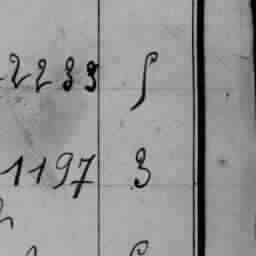 2233 ſ
1197 3